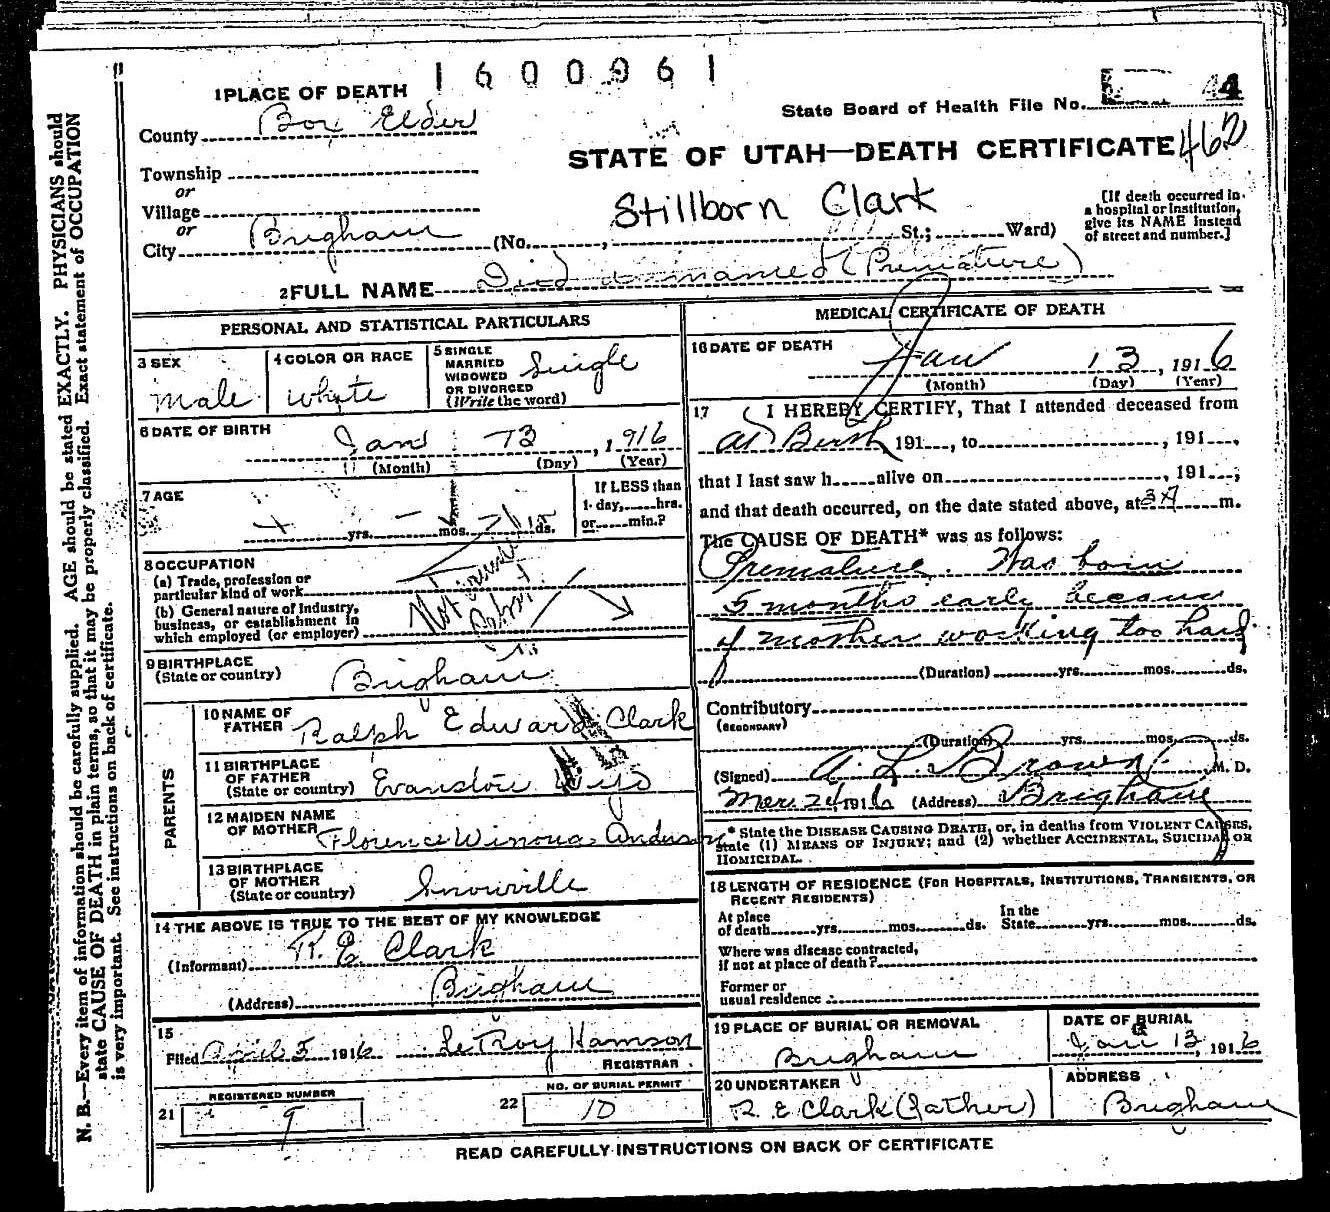 1600061
1 PLACE OF DEATH
State Board of Health File No. 44
County Box Elder
STATE OF UTAH—DEATH CERTIFICATE 462
Township
or
Village
Stillborn Clark
[If death occurred in a hospital or institution, give its NAME instead of street and number.]
or
City Brigham (No. , St.; Ward)
2 FULL NAME Died unnamed (Premature)
PERSONAL AND STATISTICAL PARTICULARS
3 SEX male
4 COLOR OR RACE white
5 SINGLE MARRIED WIDOWED OR DIVORCED (Write the word) Single
6 DATE OF BIRTH Jan 13, 1916
(Month) (Day) (Year)
7 AGE
yrs. mos. ds.
If LESS than 1 day, hrs. or min.?
8 OCCUPATION
(a) Trade, profession or particular kind of work
(b) General nature of industry, business, or establishment in which employed (or employer)
9 BIRTHPLACE (State or country) Brigham
PARENTS
10 NAME OF FATHER Ralph Edward Clark
11 BIRTHPLACE OF FATHER (State or country) Evanston Wyo
12 MAIDEN NAME OF MOTHER Florence Winona Anderson
13 BIRTHPLACE OF MOTHER (State or country) Snowville
14 THE ABOVE IS TRUE TO THE BEST OF MY KNOWLEDGE
(Informant) R. E. Clark
(Address) Brigham
15
Filed April 5 1916
REGISTRAR
21 REGISTERED NUMBER 9
22 NO. OF BURIAL PERMIT 10
MEDICAL CERTIFICATE OF DEATH
16 DATE OF DEATH
Jan 13, 1916
(Month) (Day) (Year)
17 I HEREBY CERTIFY, That I attended deceased from
at Birth 191 , to , 191 ,
that I last saw h alive on , 191 ;
and that death occurred, on the date stated above, at 3 A m.
The CAUSE OF DEATH* was as follows:
Premature. Was born
5 months early because
of mother working too hard
(Duration) yrs. mos. ds.
Contributory
(SECONDARY)
(Duration) yrs. mos. ds.
(Signed) A. L. Brown, M. D.
Mar. 24 1916 (Address) Brigham
* State the DISEASE CAUSING DEATH, or, in deaths from VIOLENT CAUSES, state (1) MEANS OF INJURY; and (2) whether ACCIDENTAL, SUICIDAL OR HOMICIDAL.
18 LENGTH OF RESIDENCE (FOR HOSPITALS, INSTITUTIONS, TRANSIENTS, OR RECENT RESIDENTS)
At place of death yrs. mos. ds. In the State yrs. mos. ds.
Where was disease contracted, if not at place of death?
Former or usual residence
19 PLACE OF BURIAL OR REMOVAL
Brigham
DATE OF BURIAL
Jan 13, 1916
20 UNDERTAKER
R. E. Clark (father)
ADDRESS
Brigham
READ CAREFULLY INSTRUCTIONS ON BACK OF CERTIFICATE
N. B.—Every item of information should be carefully supplied. AGE should be stated EXACTLY. PHYSICIANS should
state CAUSE OF DEATH in plain terms, so that it may be properly classified. Exact statement of OCCUPATION
is very important. See instructions on back of certificate.